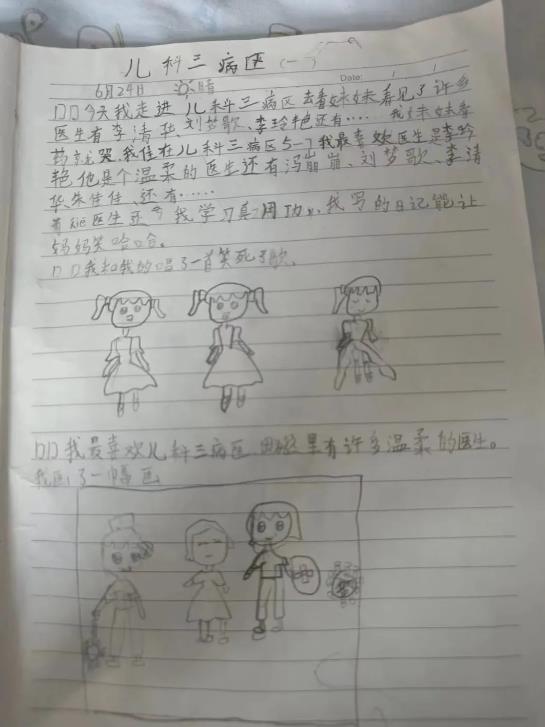 儿科三病区(一)
Date: / /
6月24日 晴
今天我走进儿科三病区去看妹妹看见了许多
医生有李清华、刘梦歌、李玲艳还有……我妹妹拿
药就哭,我住在儿科三病区5-7我最喜欢医生是李玲
艳他是个温柔的医生还有冯崩崩、刘梦歌、李清
华朱佳佳、还有……
医生还夸我学习真用功,我写的日记能让
妈妈笑哈哈。
我和我的唱了一首笑死了歌
我最喜欢儿科三病区 里有许多温柔的医生。
我画了一幅画